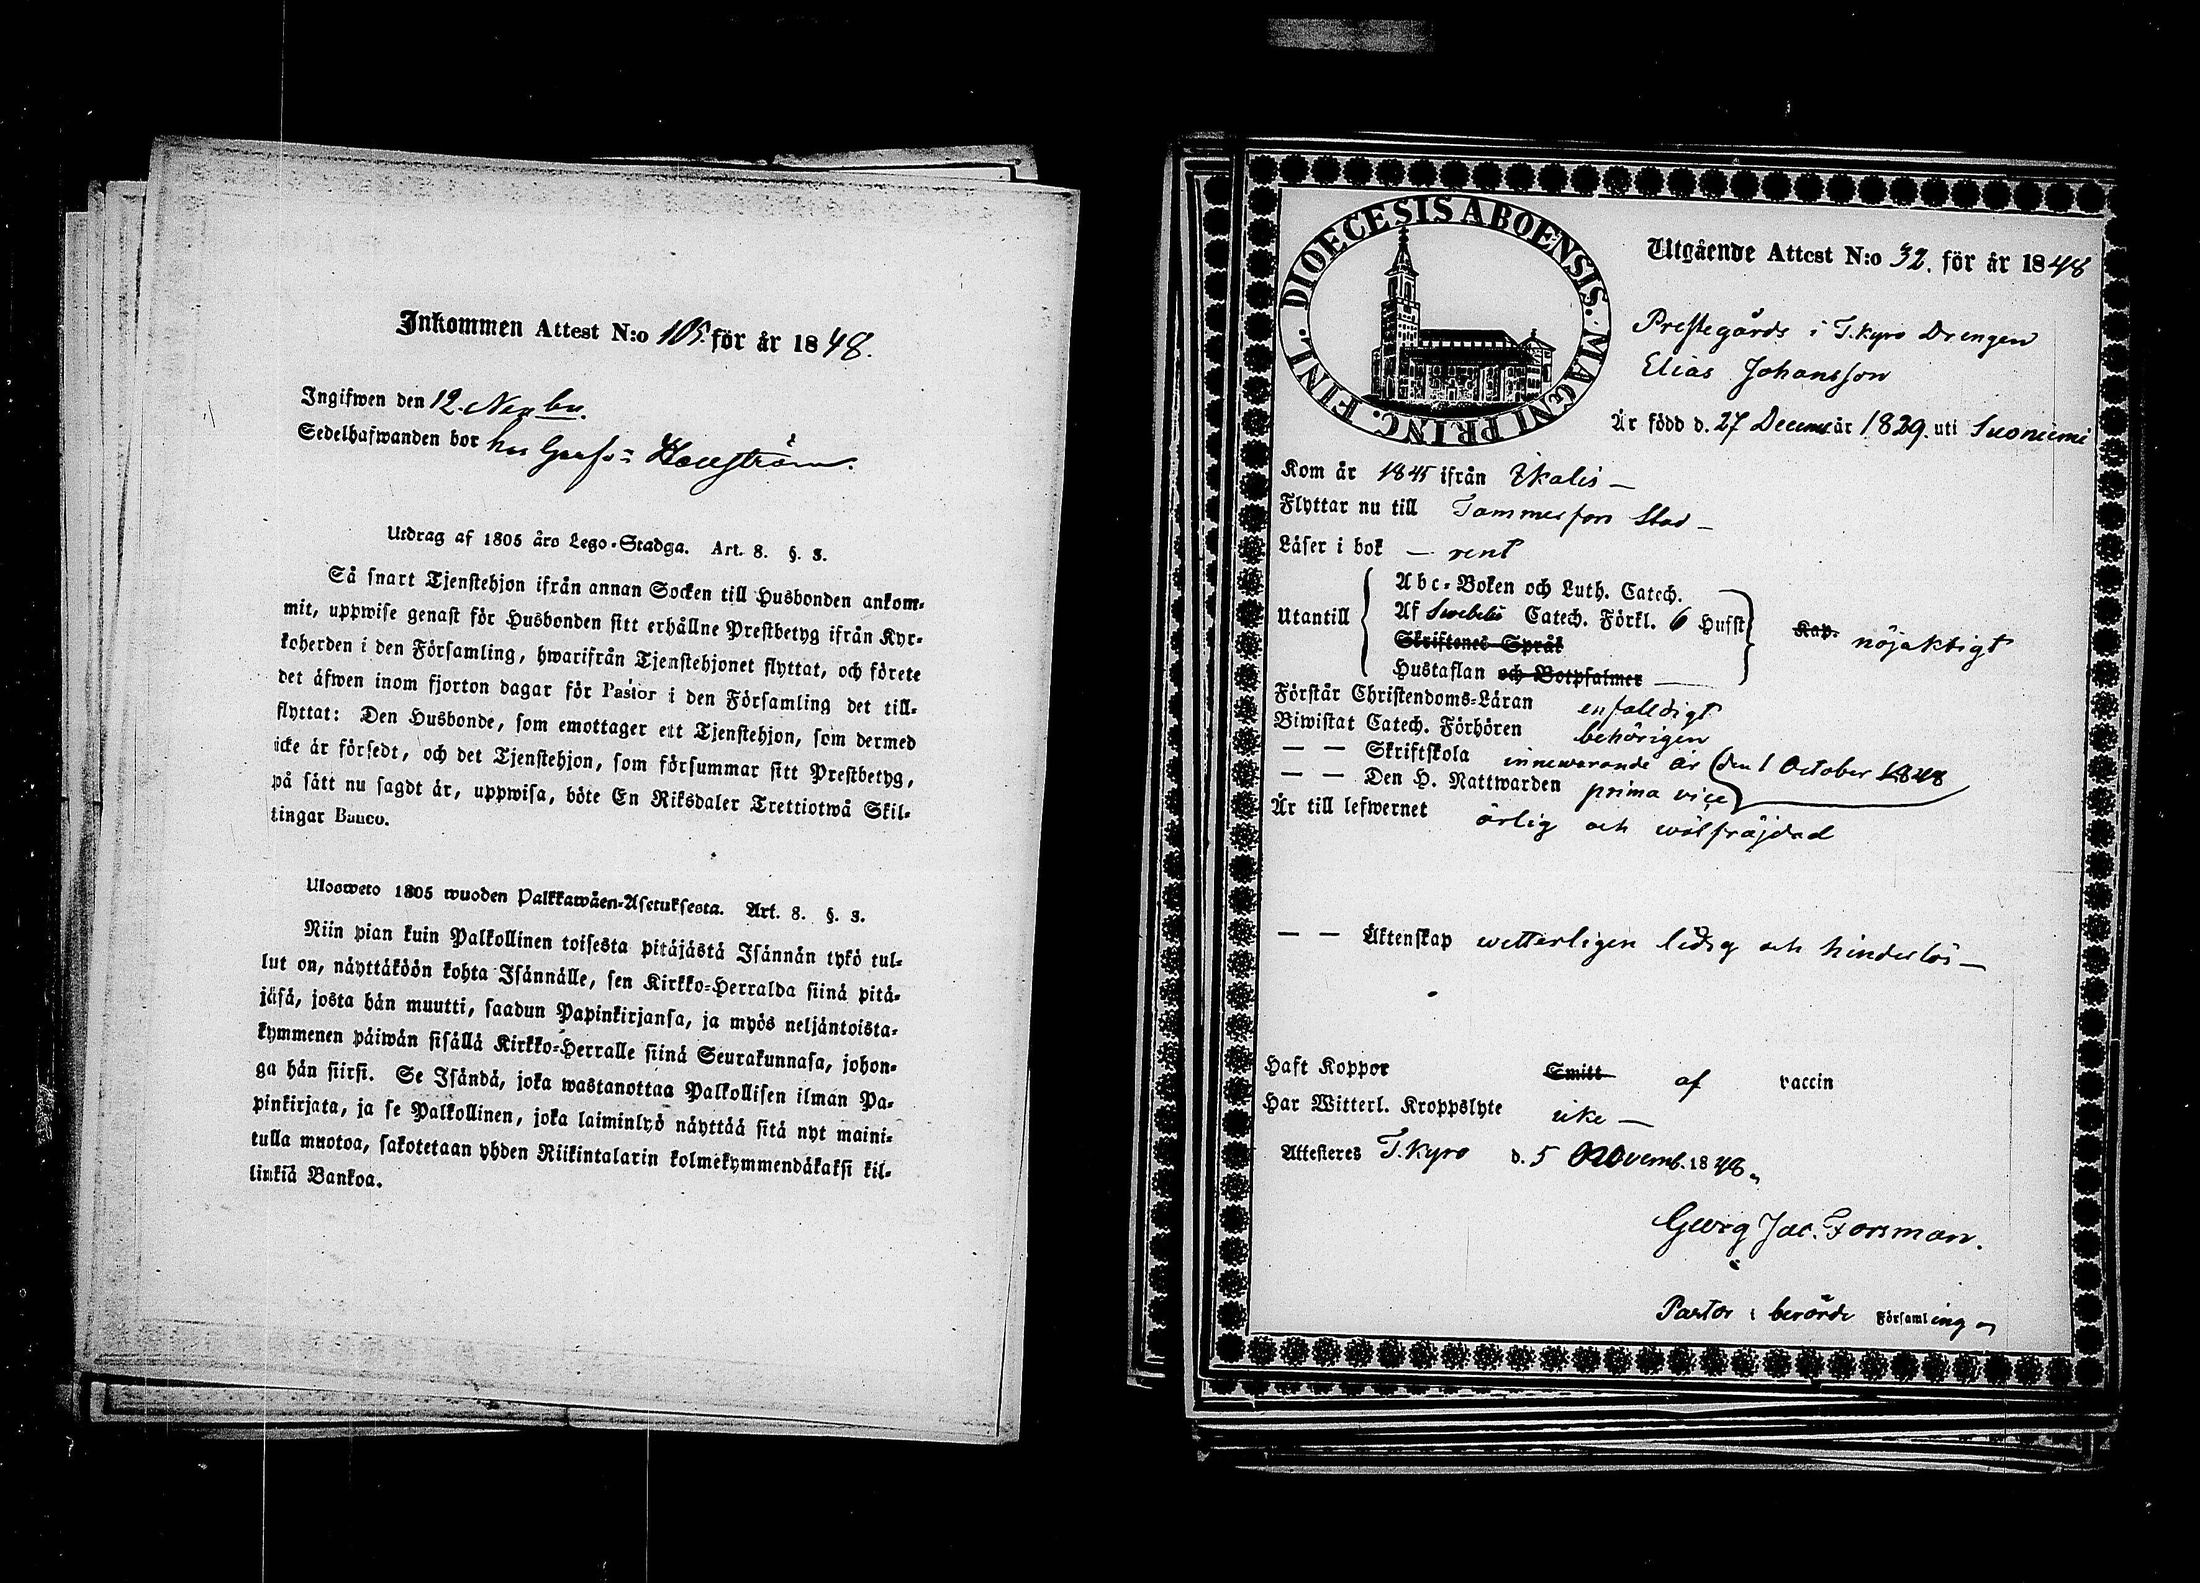 Inkommen Attest N:o 105. för år 1848.
Ingifwen den 12. Novbr.
Sedelhafwanden bor hos
Utdrag af 1805 års Lego-Stadga. Art. 8. §. 3.
Så snart Tjenstehjon ifrån annan Socken till Husbonden ankom-
mit, uppwise genast för Husbonden sitt erhållne Prestbetyg ifrån Kyr-
koherden i den Församling, hwarifrån Tjenstehjonet flyttat, och förete
det äfwen inom fjorton dagar för Pastor i den Församling det till-
flyttat: Den Husbonde, som emottager ett Tjenstehjon, som dermed
icke är försedt, och det Tjenstehjon, som försummar sitt Prestbetyg,
på sätt nu sagdt är, uppwisa, böte En Riksdaler Trettiotwå Skil-
lingar Banco.
Ulosweto 1805 wuoden Palkkawäen-Asetuksesta. Art. 8. §. 3.
Niin pian kuin Palkollinen toisesta pitäjästä Isännän tykö tul-
lut on, näyttäköön kohta Isännälle, sen Kirkko-Herralda siinä pitä-
jäsä, josta hän muutti, saadun Papinkirjansa, ja myös neljäntoista-
kymmenen päiwän sisällä Kirkko-Herralle siinä Seurakunnasa, johon-
ga hän siirsi. Se Isändä, joka wastanottaa Palkollisen ilman Pa-
pinkirjata, ja se Palkollinen, joka laiminlyö näyttää sitä nyt maini-
tulla muotoa, sakotetaan yhden Riikintalarin kolmekymmendäkaksi kil-
linkiä Bankoa.
DIOECESIS ABOENSIS. MAGNI PRINC. FINL.
Utgående Attest N:o 32. för år 1848
Prestegårds i T.kyro Drengen
Elias Johansson
Är född d. 27 Decemb år 1829. uti Suoniemi
Kom år 1845 ifrån Ikalis —
Flyttar nu till Tammerfors Stad —
Läser i bok — rent
Utantill
Abc-Boken och Luth. Catech.
Af Swebelii Catech. Förkl. 6 Hufst
Skriftenes Språk
Hustaflan och Botpsalmer —
Kap. nöjaktigt
Förstår Christendoms-Läran enfaldigt
Biwistat Catech. Förhören behörigen
— — Skriftskola innewarande år (den 1 October 1848
— — Den H. Nattwarden prima vice
Är till lefwernet ärlig och wälfräjdad
— — Äktenskap wetterligen ledig och hinderlös —
Haft Koppor Smitt af vaccin
Har Witterl. Kroppslyte icke —
Attesteras T.kyro d. 5 Novemb. 1848.
Georg Jac. Forsman.
Pastor i berörde Församling